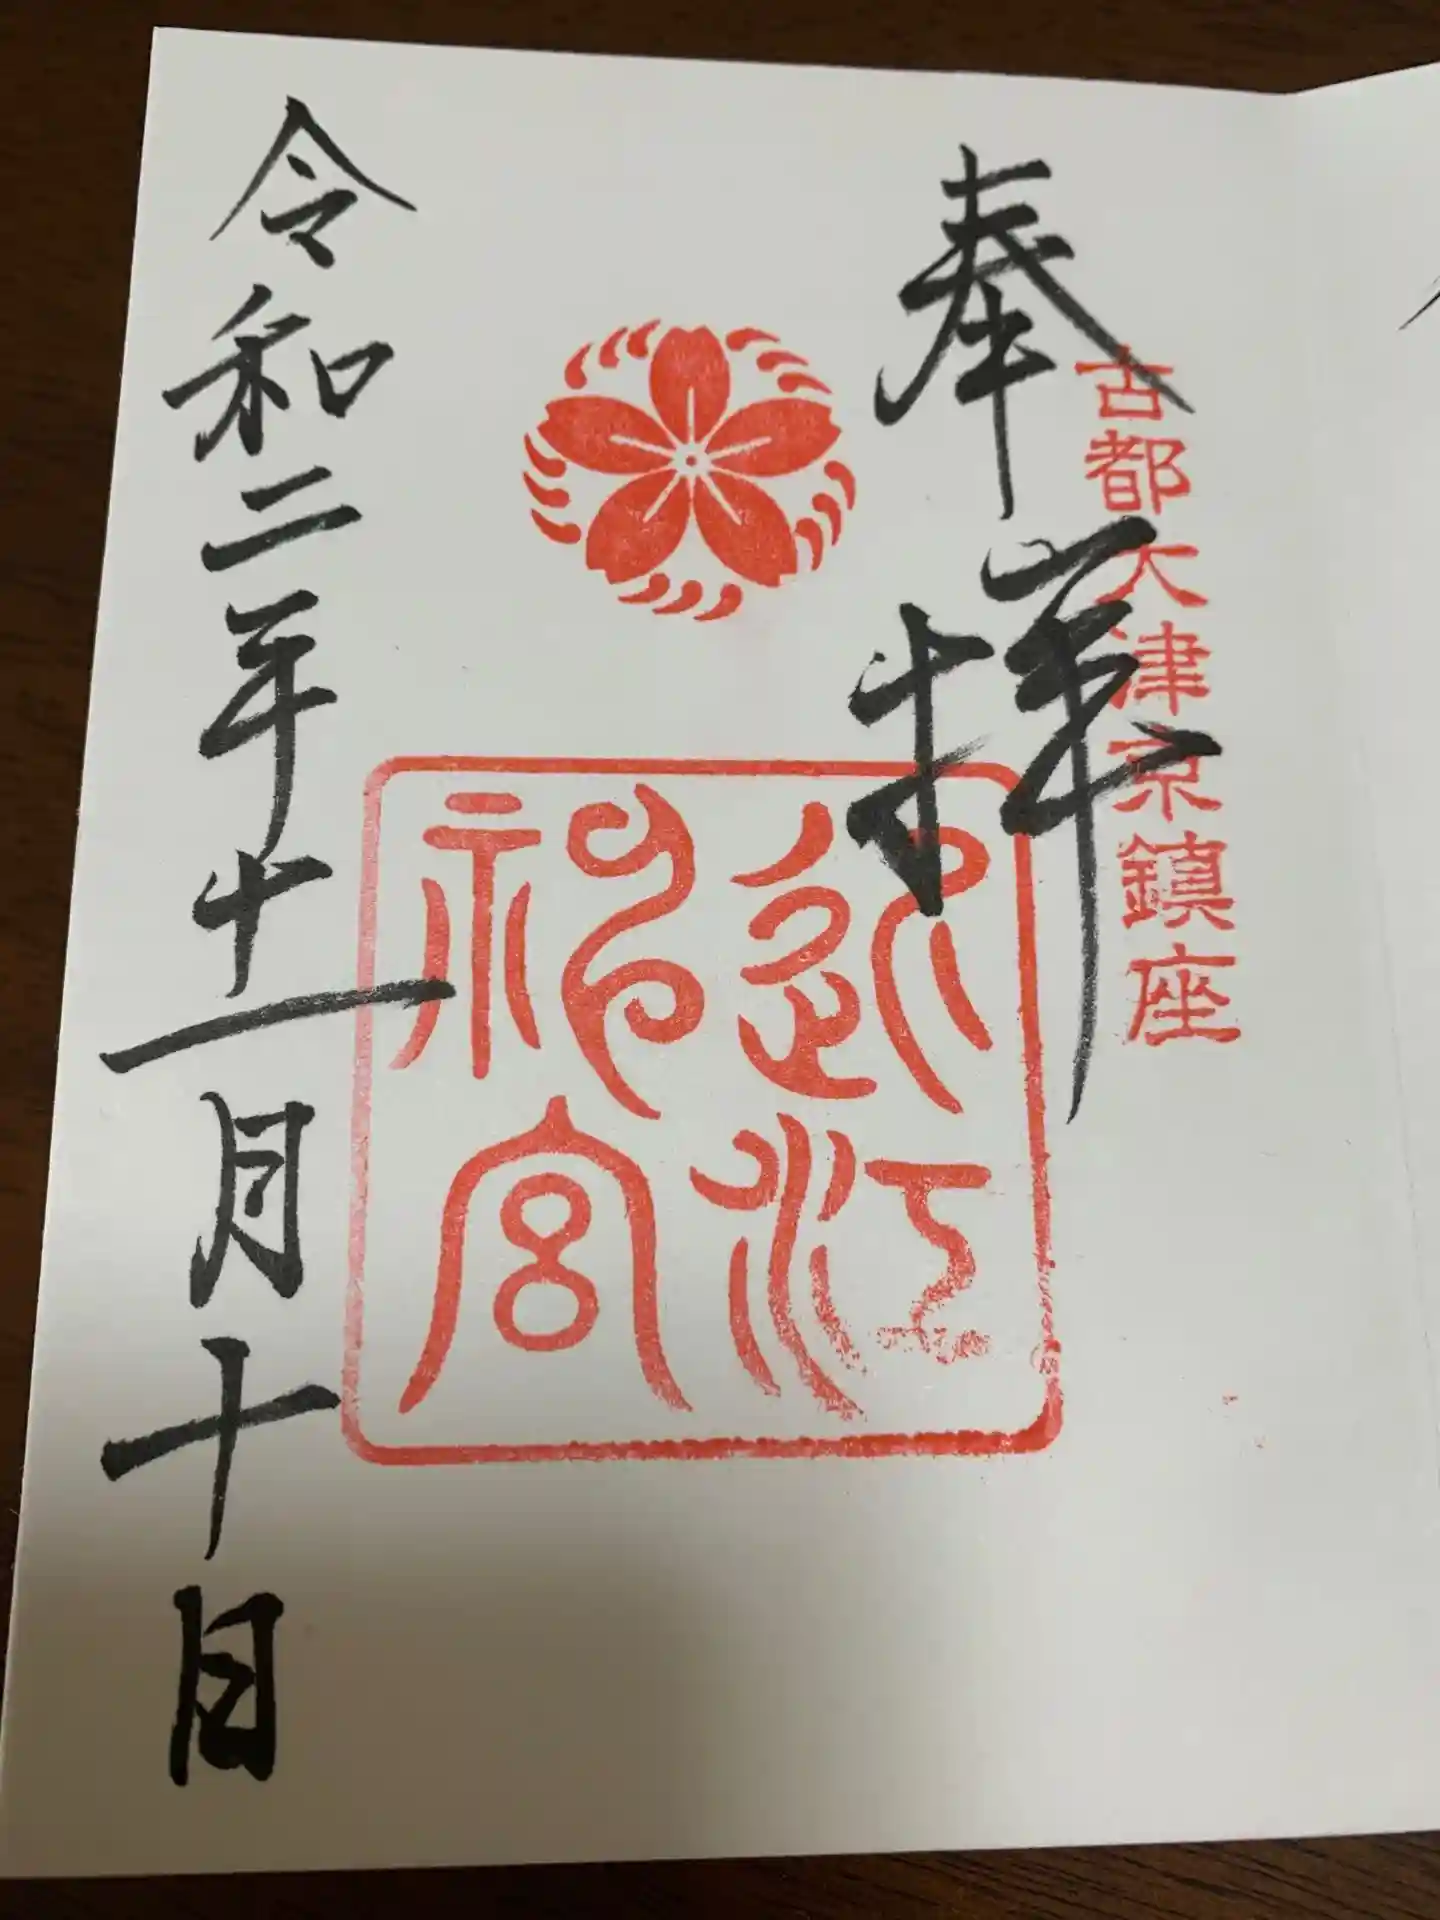 奉拝
古都大津京鎮座
近江
神宮
令和二年十一月十日